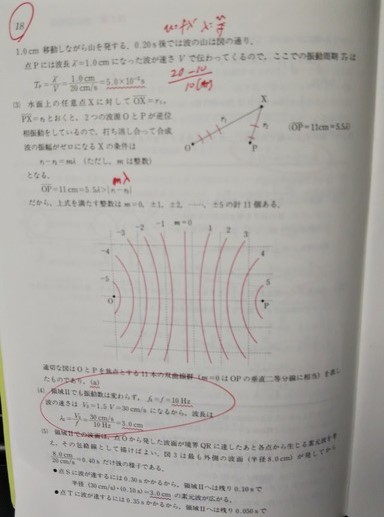 18
1.0 cm 移動しながら山を発する。0.20 s 後では波の山は図の通り。
点Pには波長 λ'=1.0 cm になった波が速さ V で伝わってくるので、ここでの振動周期 Tₚ は
Tₚ = λ'/V = 1.0 cm / 20 cm/s = 5.0×10⁻² s
20-10
水面上の任意点Xに対して OX=r₁,
PX=r₂ とおくと、2つの波源OとPが逆位
相振動をしているので、打ち消し合って合成
波の振幅がゼロになるXの条件は
r₁-r₂=mλ (ただし, m は整数)
となる。
mλ
OP=11cm=5.5λ>|r₁-r₂|
だから、上式を満たす整数は m=0, ±1, ±2, ……, ±5 の計11個ある。
X
O
P
(OP=11cm=5.5λ)
-3 -2 -1 m=0 1 2 3
-4 4
-5 5
O P
適切な図はOとPを焦点とする11本の双曲線群 (m=0 はOPの垂直二等分線に相当) を表し
たものであり、(a)
(4) 領域Ⅱでも振動数は変わらず、 f₂=f=10 Hz
波の速さは V₂=1.5 V=30 cm/s になるから、波長は
λ₂ = V₂/f = 30 cm/s / 10 Hz = 3.0 cm
(5) 領域Ⅱでの波面は、点Oから発した波面が境界QRに達したあと各点から生じる素元波を考
え、その包絡線として描けばよい。図3は最も外側の波面 (半径 8.0 cm) が発してから
8.0 cm / 20 cm/s = 0.40 s だけ後の様子である。
●点Sに波が達するには 0.30 s かかるから、領域Ⅱへは残り 0.10 s で
半径 (30 cm/s)×(0.10 s)=3.0 cm の素元波が広がる。
●点Tに波が達するには 0.35 s かかるから、領域Ⅱへは残り 0.050 s で